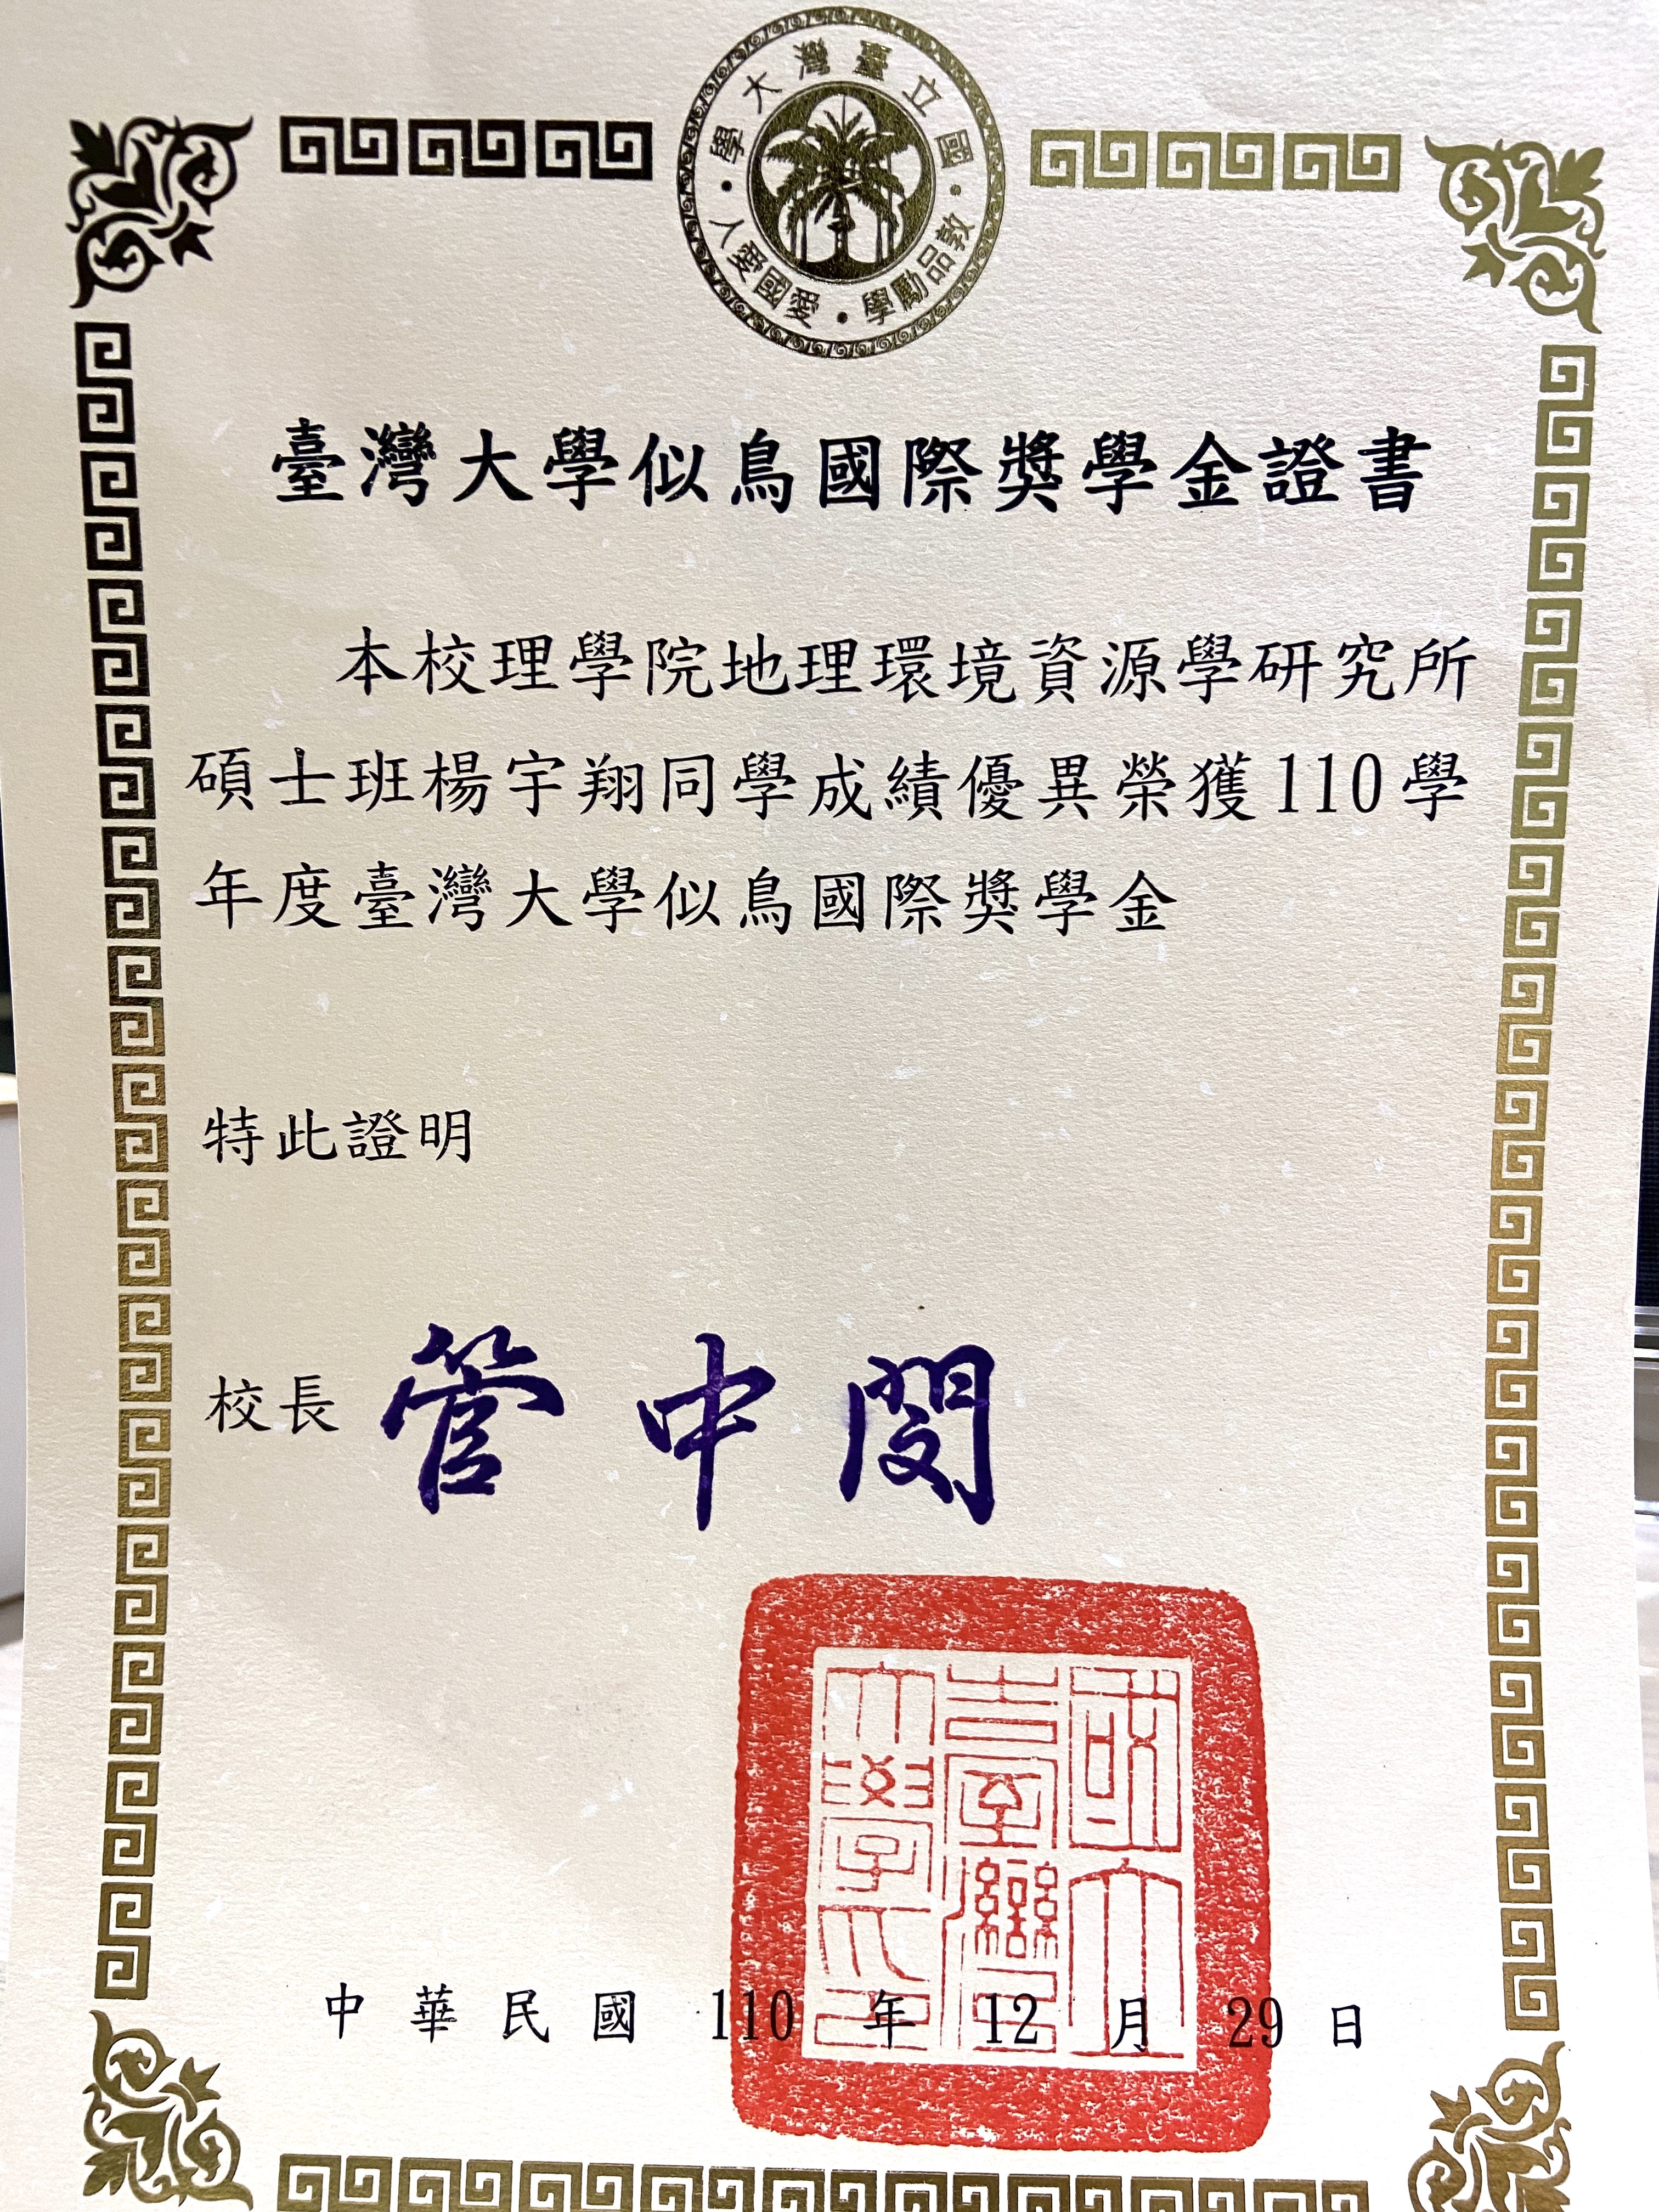 國立臺灣大學
敦品勵學・愛國愛人
臺灣大學似鳥國際獎學金證書
本校理學院地理環境資源學研究所
碩士班楊宇翔同學成績優異榮獲110學
年度臺灣大學似鳥國際獎學金
特此證明
校長 管中閔
國立臺灣大學印
中華民國 110 年 12 月 29 日